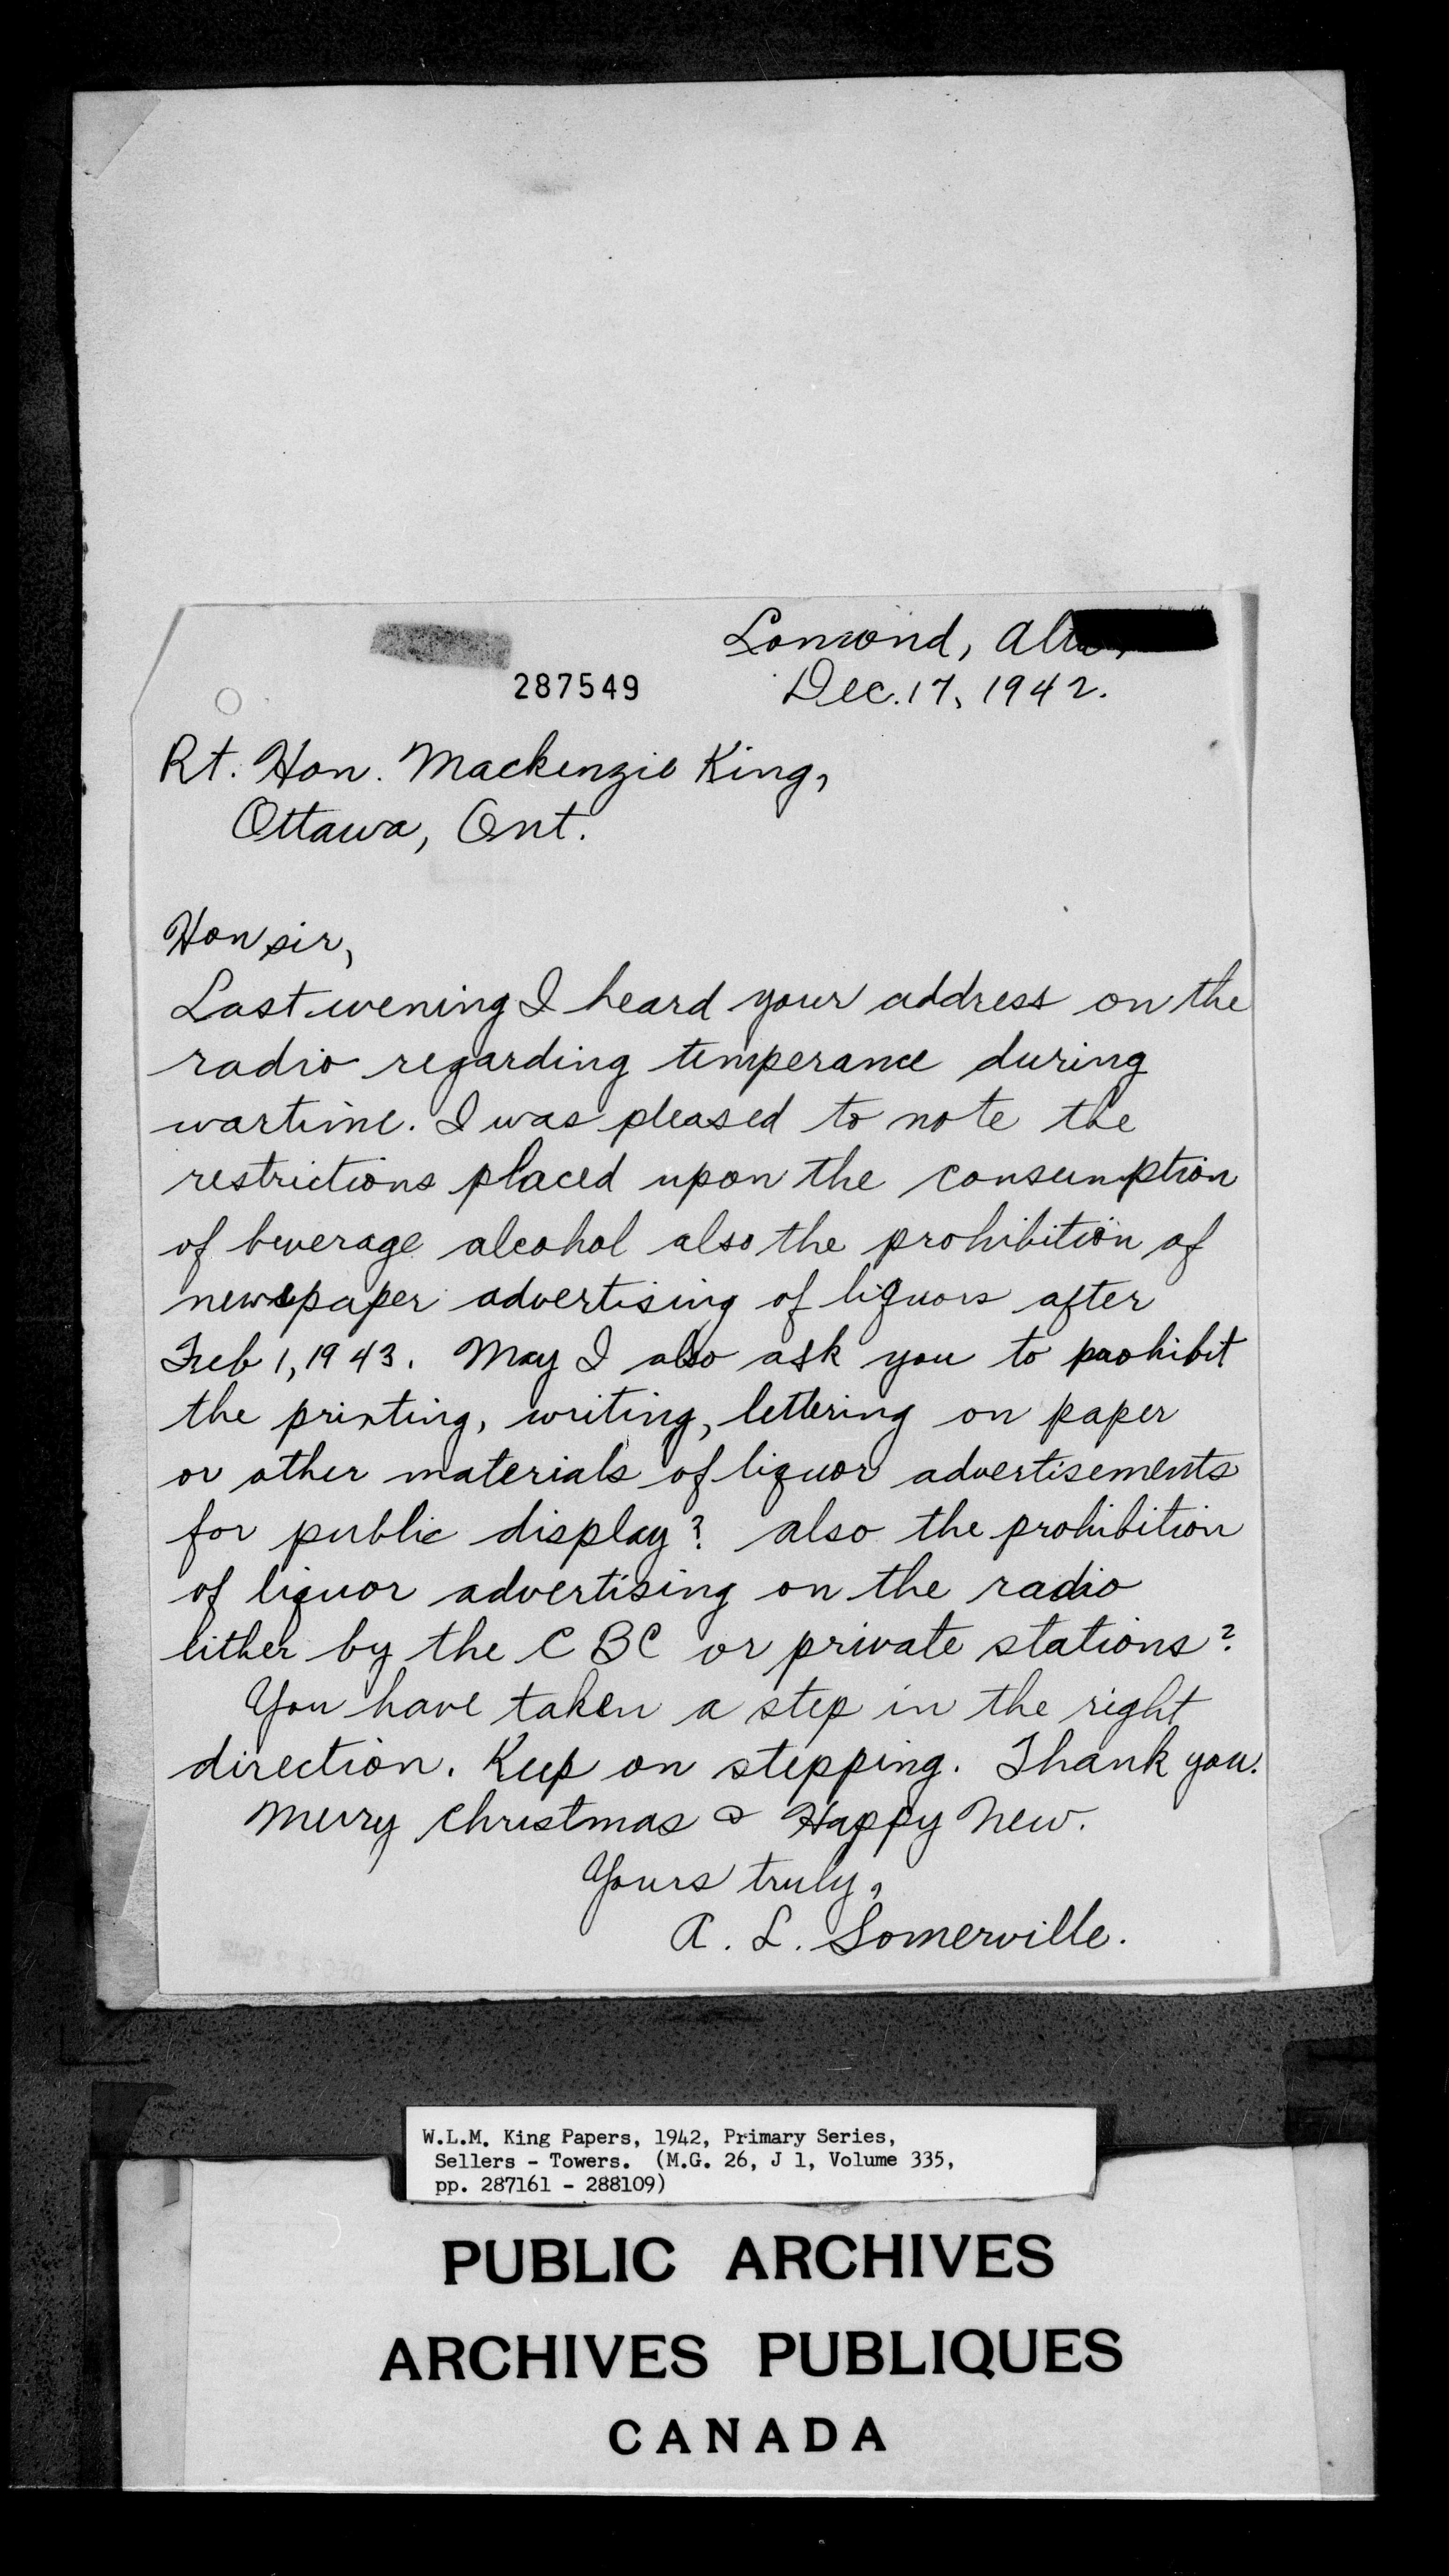 Lomond, Alta,
287549
Dec. 17, 1942.
Rt. Hon. Mackenzie King,
Ottawa, Ont.
Hon sir,
Last evening I heard your address on the
radio regarding temperance during
wartime. I was pleased to note the
restrictions placed upon the consumption
of beverage alcohol also the prohibition of
newspaper advertising of liquors after
Feb 1, 1943. May I also ask you to prohibit
the printing, writing, lettering on paper
or other materials of liquor advertisements
for public display? also the prohibition
of liquor advertising on the radio
either by the C B C or private stations?
You have taken a step in the right
direction. Keep on stepping. Thank you.
Merry Christmas & Happy New.
Yours truly,
A. L. Somerville.
W.L.M. King Papers, 1942, Primary Series,
Sellers - Towers. (M.G. 26, J 1, Volume 335,
pp. 287161 - 288109)
PUBLIC ARCHIVES
ARCHIVES PUBLIQUES
CANADA